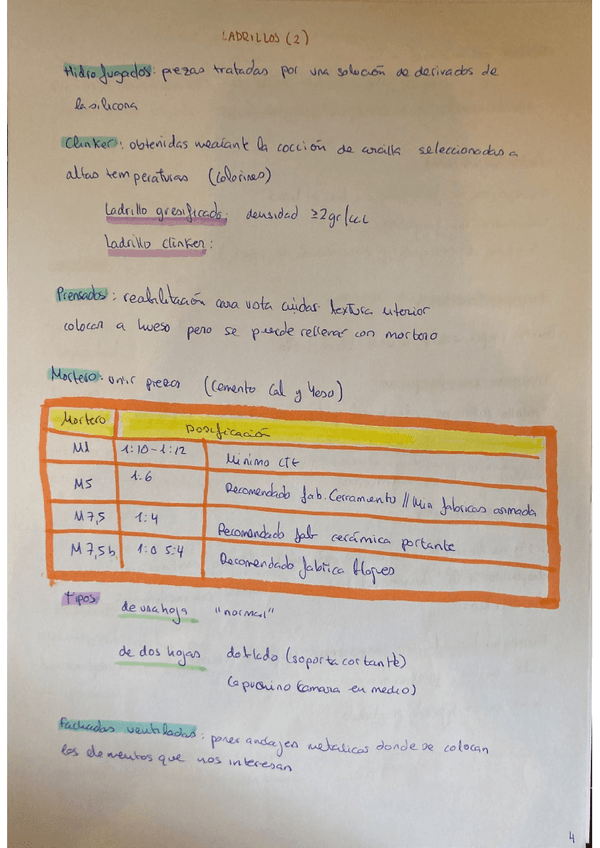 LADRILLOS (2)
Hidrofugados: piezas tratadas por una solución de derivados de
la silicona
Clinker: obtenidas mediante la cocción de arcilla seleccionadas a
altas temperaturas (colorines)
Ladrillo gresificado: densidad ≥2gr/cc
Ladrillo clinker:
Prensados: reabilitación cara vota cuidar textura interior
colocan a hueso pero se puede rellenar con mortero
Mortero: unir piezas (Cemento Cal y Yeso)
Mortero Dosificación
M1 1:10-1:12 Mínimo CTE
M5 1:6 Recomendado fab. Cerramiento // Min fabricas armada
M7,5 1:4 Recomendado fab cerámica portante
M7,5b 1:0 5:4 Recomendado fabrica bloques
Tipos de una hoja "normal"
de dos hojas doblado (soporta cortante)
Capuchino (camara en medio)
Fachadas ventiladas: poner anclajes metalicos donde se colocan
los elementos que nos interesan
4